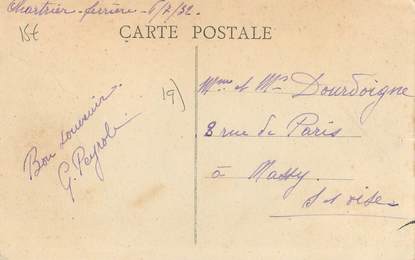 Chartrier-ferrière - 6/7/32.
15€
CARTE POSTALE
19)
Bon souvenir
G. Peyrole
Mme et Mr Dourdoigne
8 rue de Paris
à Massy.
S et Oise